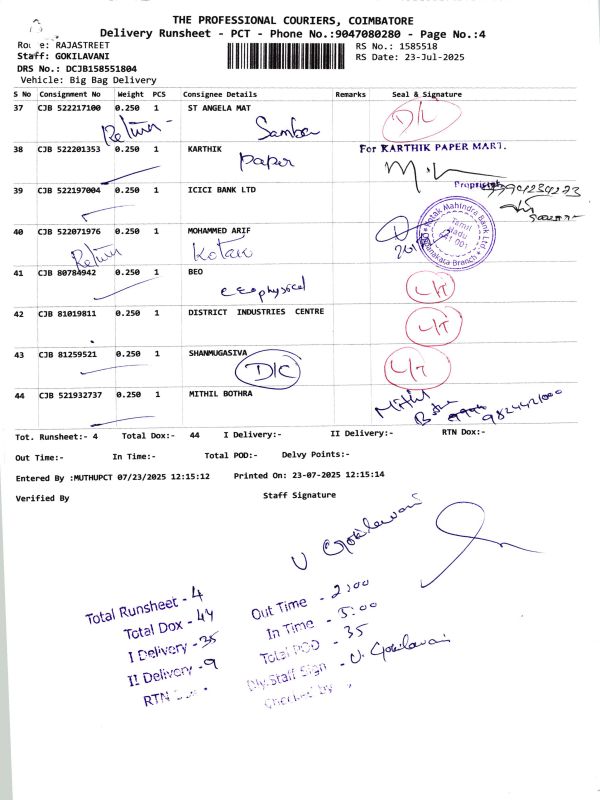 THE PROFESSIONAL COURIERS, COIMBATORE
Delivery Runsheet - PCT - Phone No.:9047080280 - Page No.:4
Route: RAJASTREET
RS No.: 1585518
Staff: GOKILAVANI
RS Date: 23-Jul-2025
DRS No.: DCJB158551804
Vehicle: Big Bag Delivery
S No Consignment No Weight PCS Consignee Details Remarks Seal & Signature
37 CJB 522217100 0.250 1 ST ANGELA MAT D/L
Return - Samba
38 CJB 522201353 0.250 1 KARTHIK For KARTHIK PAPER MART.
Paper
Proprietor
39 CJB 522197004 0.250 1 ICICI BANK LTD
Kotak Mahindra Bank Ltd
Tamil Nadu
641 001
40 CJB 522071976 0.250 1 MOHAMMED ARIF
Return Kotak
41 CJB 80784942 0.250 1 BEO L/T
Geophysical
42 CJB 81019811 0.250 1 DISTRICT INDUSTRIES CENTRE L/T
43 CJB 81259521 0.250 1 SHANMUGASIVA L/T
D/C
44 CJB 521932737 0.250 1 MITHIL BOTHRA Mithil
Tot. Runsheet:- 4 Total Dox:- 44 I Delivery:- II Delivery:- RTN Dox:-
Out Time:- In Time:- Total POD:- Delvy Points:-
Entered By :MUTHUPCT 07/23/2025 12:15:12 Printed On: 23-07-2025 12:15:14
Verified By Staff Signature
V Gokilavani
Total Runsheet - 4
Total Dox - 44
I Delivery - 35
II Delivery - 9
RTN
Out Time - 2:00
In Time - 5:00
Total POD - 35
Dly.Staff Sign - V. Gokilavani
Checked by